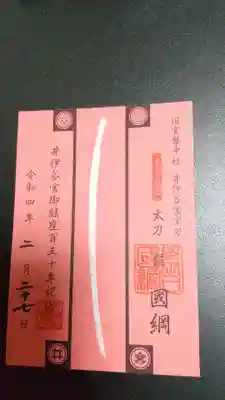 旧官幣中社 井伊谷宮宝刀
太刀 銘 國綱
井伊谷宮御鎮座百五十年記念
令和四年 二月二十七日